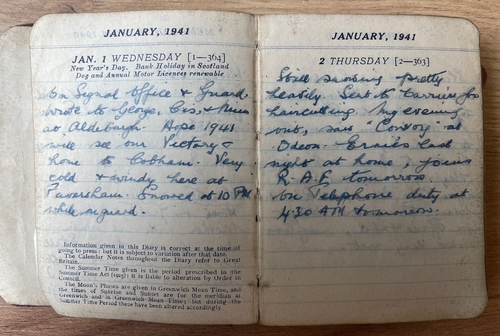 JANUARY, 1941
JAN. 1 WEDNESDAY [1—364]
New Year's Day. Bank Holiday in Scotland
Dog and Annual Motor Licences renewable
On Signal Office & Guard
wrote to George, Cis, & Mum
at Aldeburgh. Hope 1941
will see our Victory &
home to Cobham. Very
cold & windy here at
Faversham. Snowed at 10 PM
while on guard.
Information given in this Diary is correct at the time of
going to press; but it is subject to variation after that date.
The Calendar Notes throughout the Diary refer to Great
Britain.
The Summer Time given is the period prescribed in the
Summer Time Act (1925): it is liable to alteration by Order in
Council.
The Moon's Phases are given in Greenwich Mean Time, and
the times of Sunrise and Sunset are for the meridian of
Greenwich and in Greenwich Mean Time; but during the
Summer Time Period these have been altered accordingly
JANUARY, 1941
2 THURSDAY [2—363]
Still snowing pretty
heavily. Sent to Carriers for
haircutting. My evening
out, saw "Convoy" at
Odeon. Ernie's last
night at home, joins
R.A.F. tomorrow
On Telephone duty at
4.30 AM tomorrow.